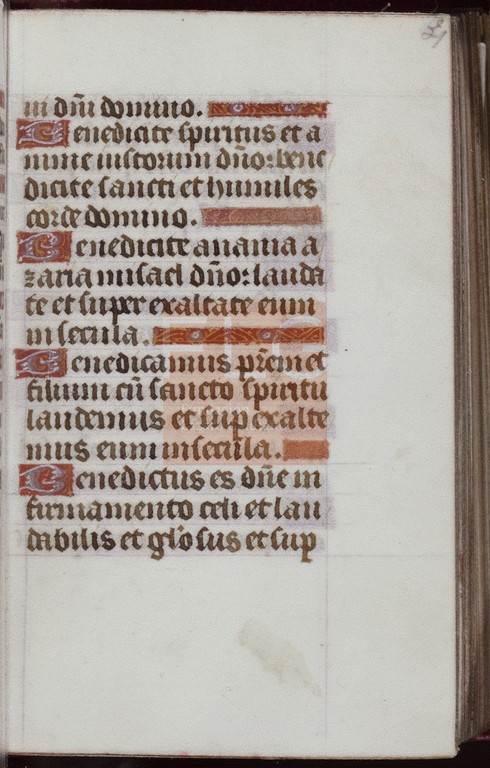 ui dñi domino.
Benedicite spiritus et a
nime iustorum dño: bene
dicite sancti et humiles
corde domino.
Benedicite anania a
zaria misael dño: lauda
te et super exaltate eum
in secula.
Benedicamus pr̃em et
filium cũ sancto spiritu
laudemus et sup exalte
mus eum in secula.
Benedictus es dñe in
firmamento celi et lau
dabilis et glo sus et sup